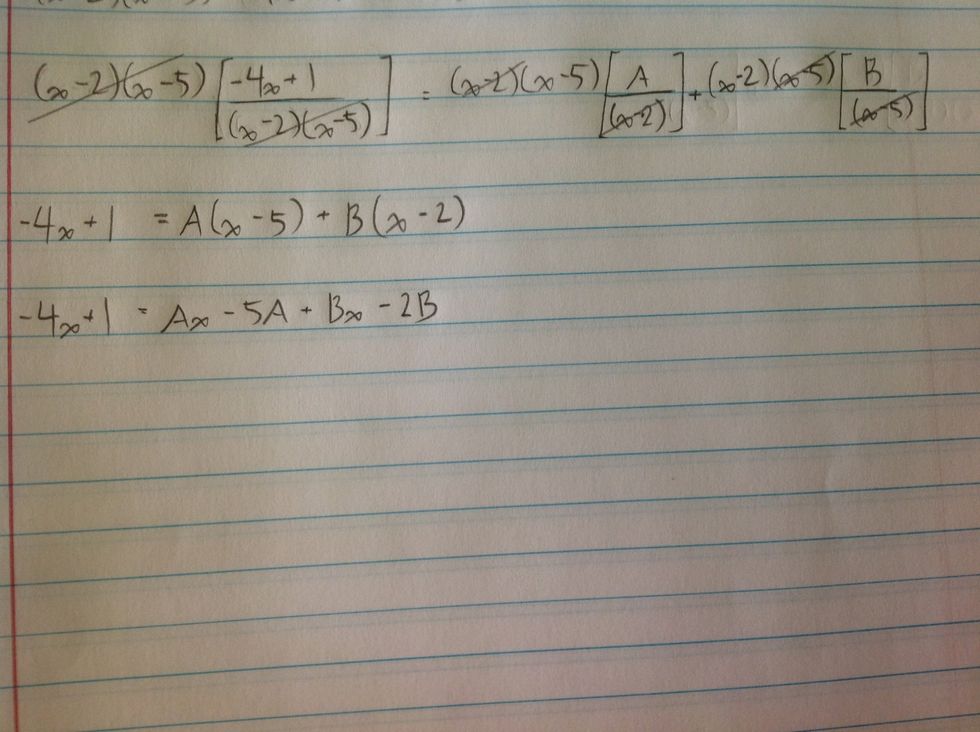 (x-2)(x-5) [-4x+1 / (x-2)(x-5)] = (x-2)(x-5) [A / (x-2)] + (x-2)(x-5) [B / (x-5)]
-4x+1 = A(x-5) + B(x-2)
-4x+1 = Ax - 5A + Bx - 2B